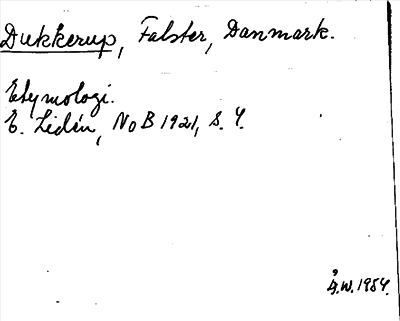 Dukkerup, Falster, Danmark.
Etymologi.
E. Lidén, NoB 1921, S. 4.
Å.W. 1954.